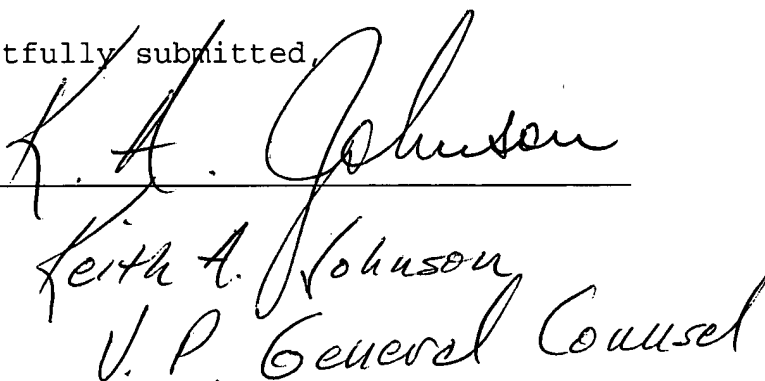 tfully submitted,
K. A. Johnson
Keith A. Johnson
V. P. General Counsel